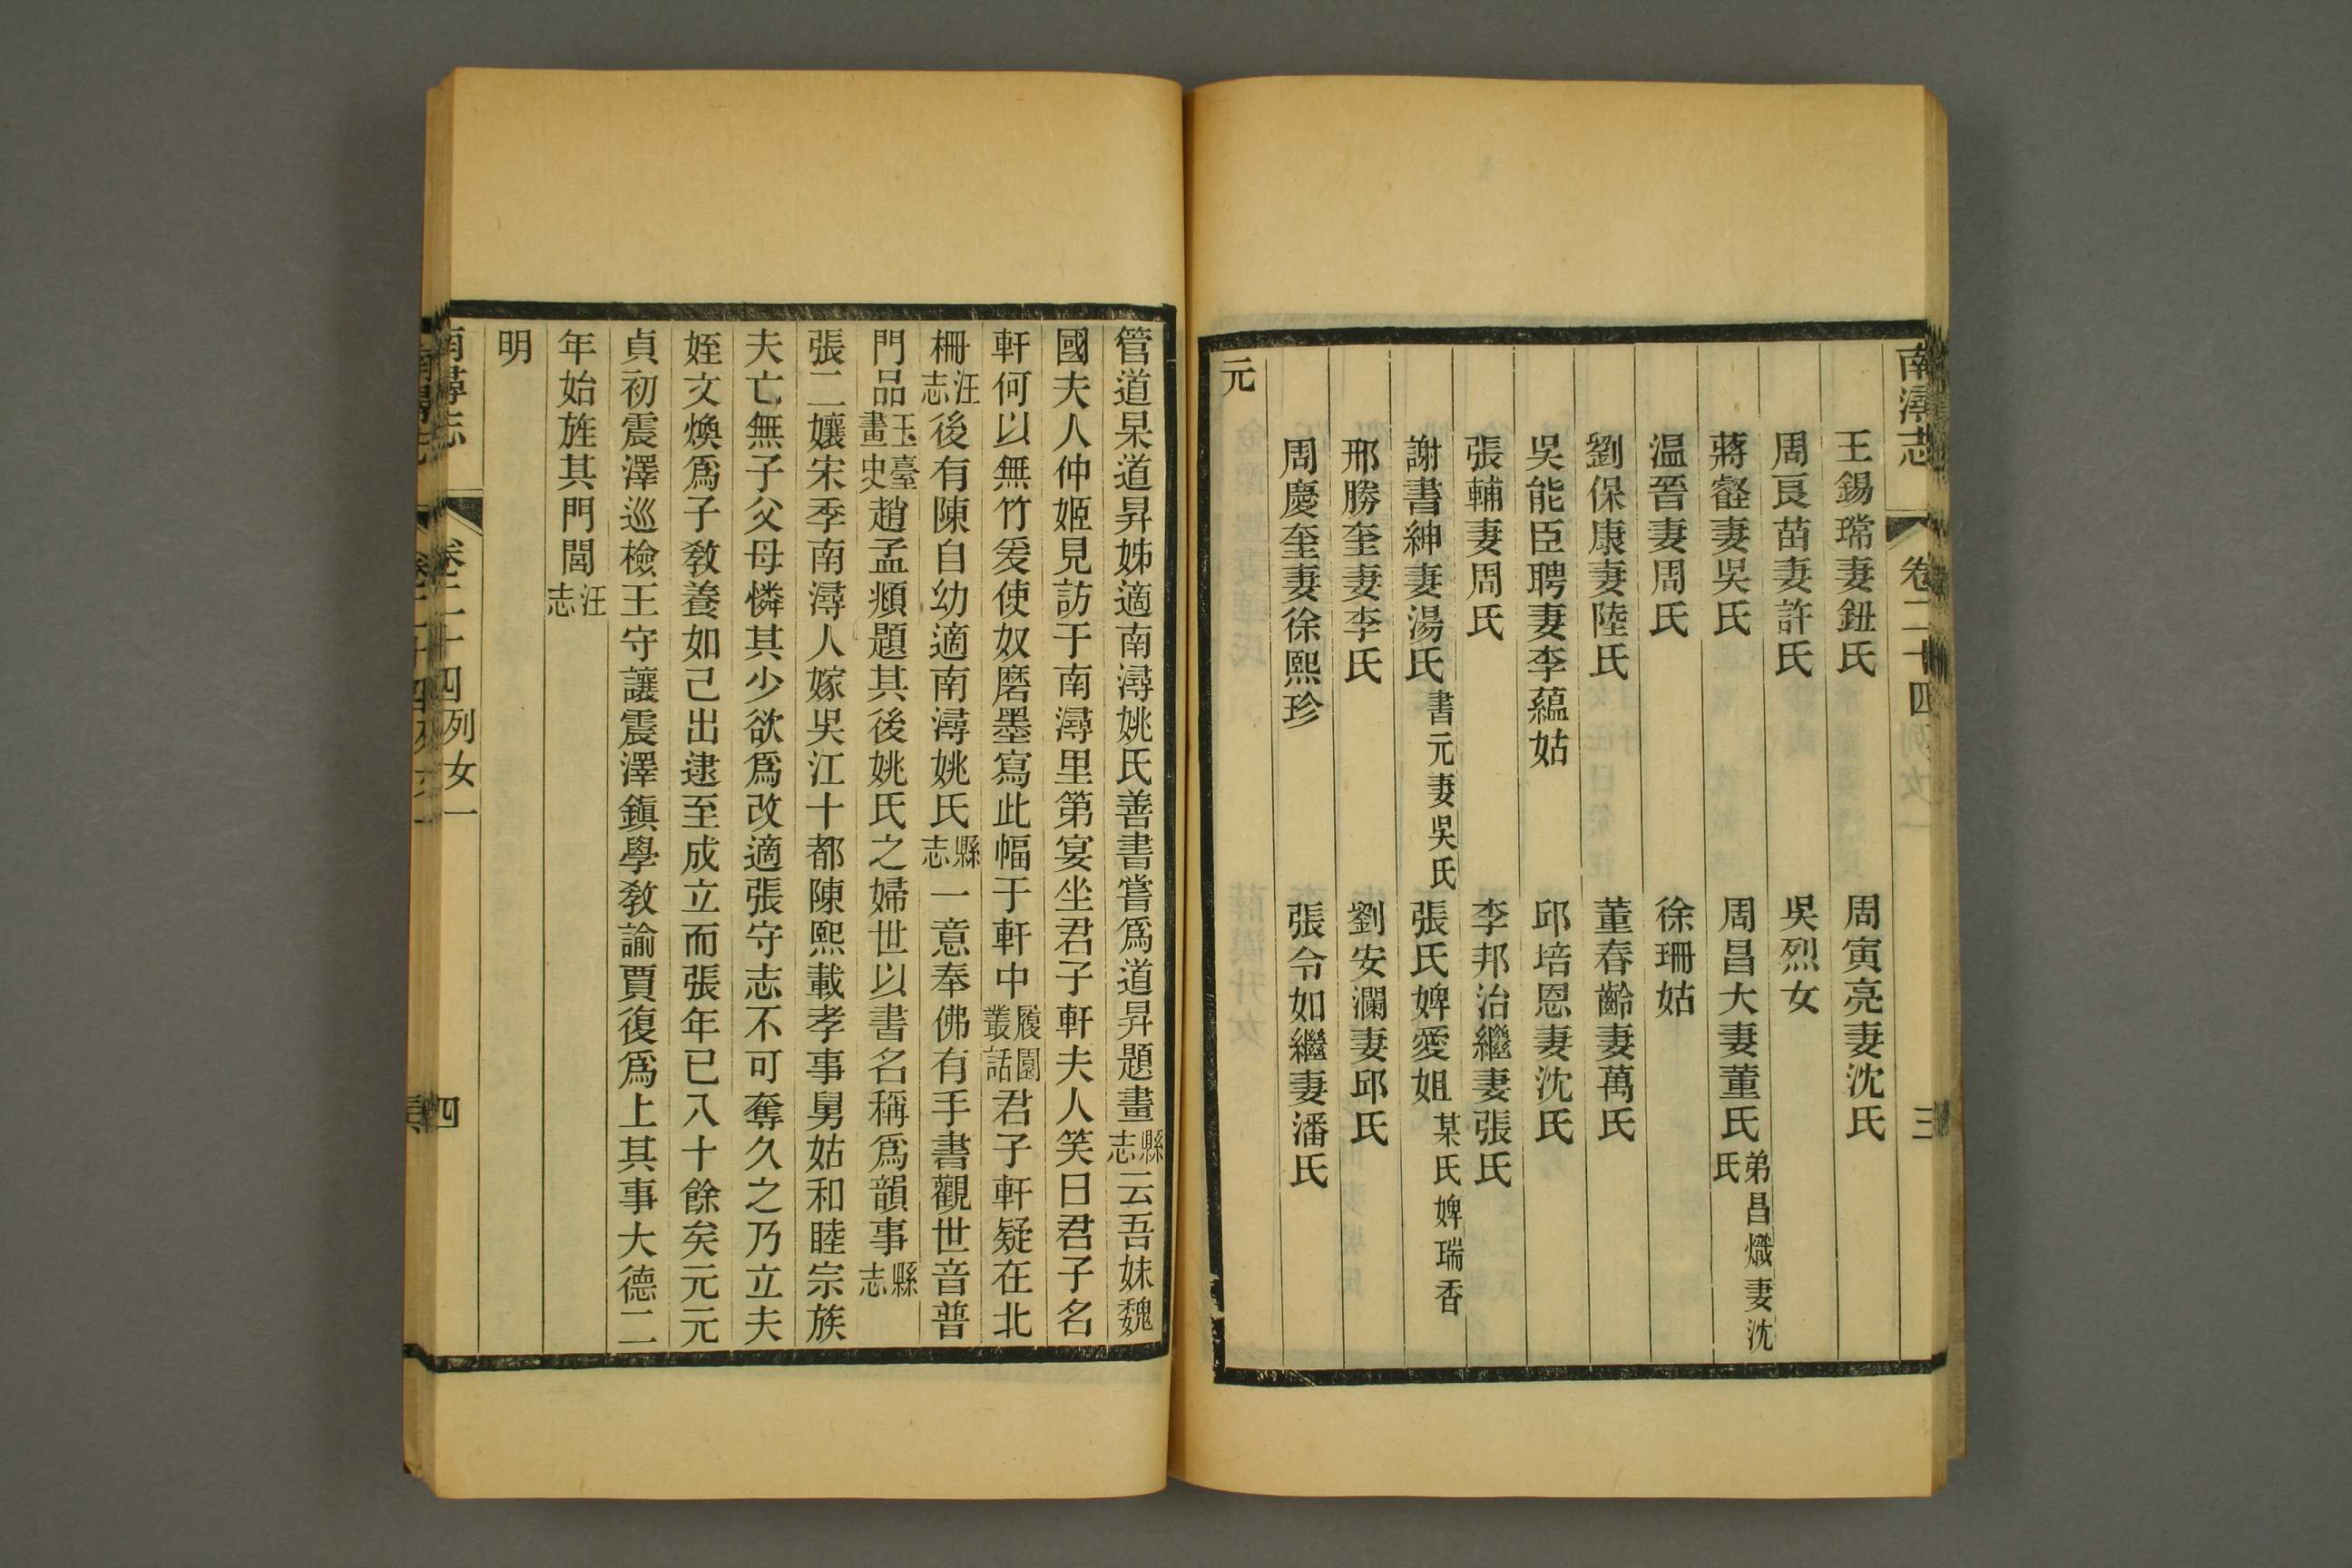 南潯志 卷二十四 三
王錫璫妻鈕氏 周寅亮妻沈氏
周良苗妻許氏 吳烈女
蔣壑妻吳氏 周昌大妻董氏 弟昌熾妻沈氏
温晉妻周氏 徐珊姑
劉保康妻陸氏 董春齡妻萬氏
吳能臣聘妻李蘊姑 邱培恩妻沈氏
張輔妻周氏 李邦治繼妻張氏
謝書紳妻湯氏 書元妻吳氏 張氏婢愛姐 某氏婢瑞香
邢勝奎妻李氏 劉安瀾妻邱氏
周慶奎妻徐熙珍 張令如繼妻潘氏
元
管道杲道昇姊適南潯姚氏善書嘗爲道昇題畫縣志云吾妹魏
國夫人仲姬見訪于南潯里第宴坐君子軒夫人笑曰君子名
軒何以無竹爰使奴磨墨寫此幅于軒中履園叢話君子軒疑在北
柵汪志後有陳自幼適南潯姚氏縣志一意奉佛有手書觀世音普
門品玉臺畫史趙孟頫題其後姚氏之婦世以書名稱爲韻事縣志
張二孃宋季南潯人嫁吳江十都陳熙載孝事舅姑和睦宗族
夫亡無子父母憐其少欲爲改適張守志不可奪久之乃立夫
姪文煥爲子敎養如己出逮至成立而張年已八十餘矣元元
貞初震澤巡檢王守讓震澤鎭學敎諭賈復爲上其事大德二
年始旌其門閭汪志
明
南潯志 卷二十四列女一 四